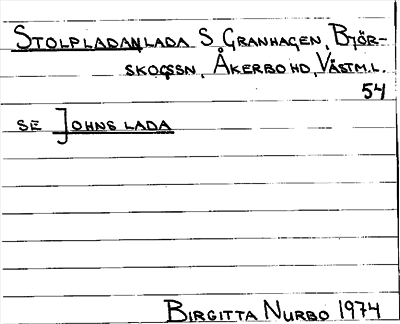 STOLPLADAN, LADA S GRANHAGEN, BJÖR-
SKOGSSN, ÅKERBO HD, VÄSTM.L.
54
SE JOHNS LADA
BIRGITTA NURBO 1974